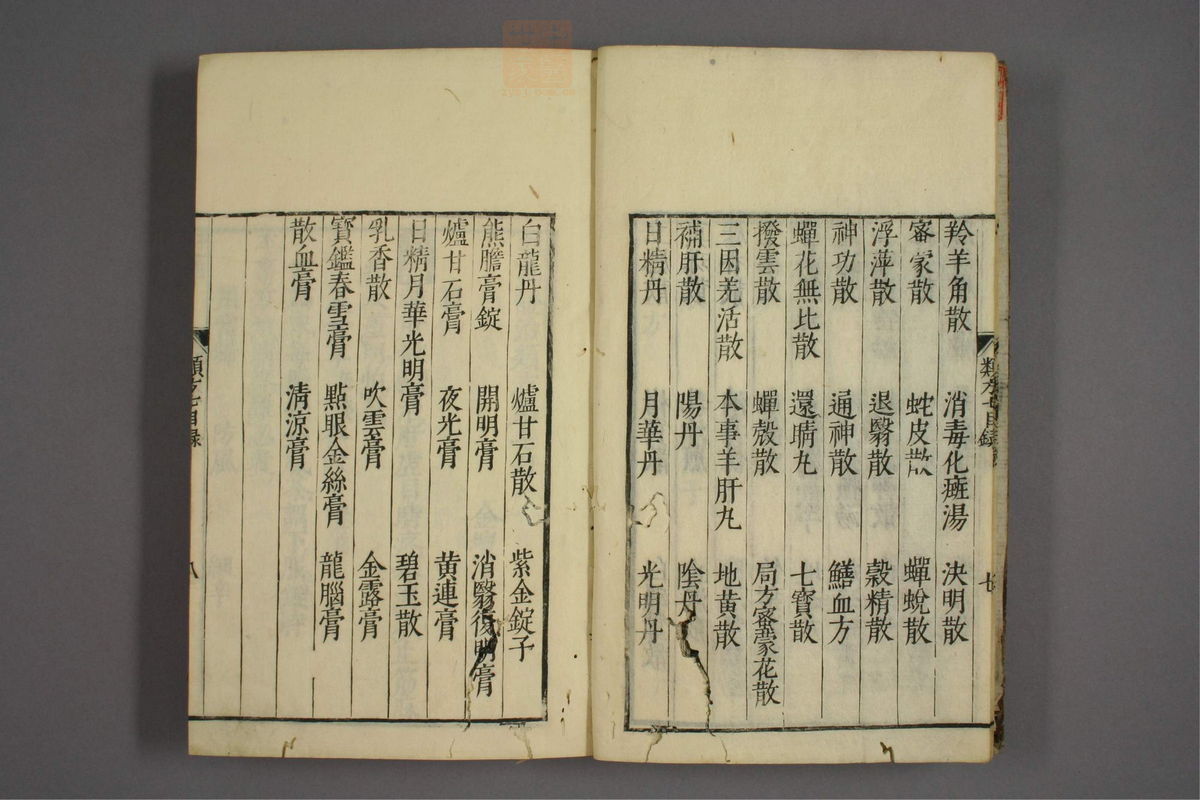 羚羊角散 消毒化癍湯 決明散
密蒙散 蛇皮散 蟬蛻散
浮萍散 退翳散 穀精散
神功散 通神散 鱔血方
蟬花無比散 還睛丸 七寶散
撥雲散 蟬殼散 局方密蒙花散
三因羌活散 本事羊肝丸 地黃散
補肝散 陽丹 陰丹
日精丹 月華丹 光明丹
類方七目錄 七
白龍丹 爐甘石散 紫金錠子
熊膽膏錠 開明膏 消翳復明膏
爐甘石膏 夜光膏 黃連膏
日精月華光明膏 碧玉散
乳香散 吹雲膏 金露膏
寶鑑春雪膏 點眼金絲膏 龍腦膏
散血膏 清涼膏
類方七目錄 八